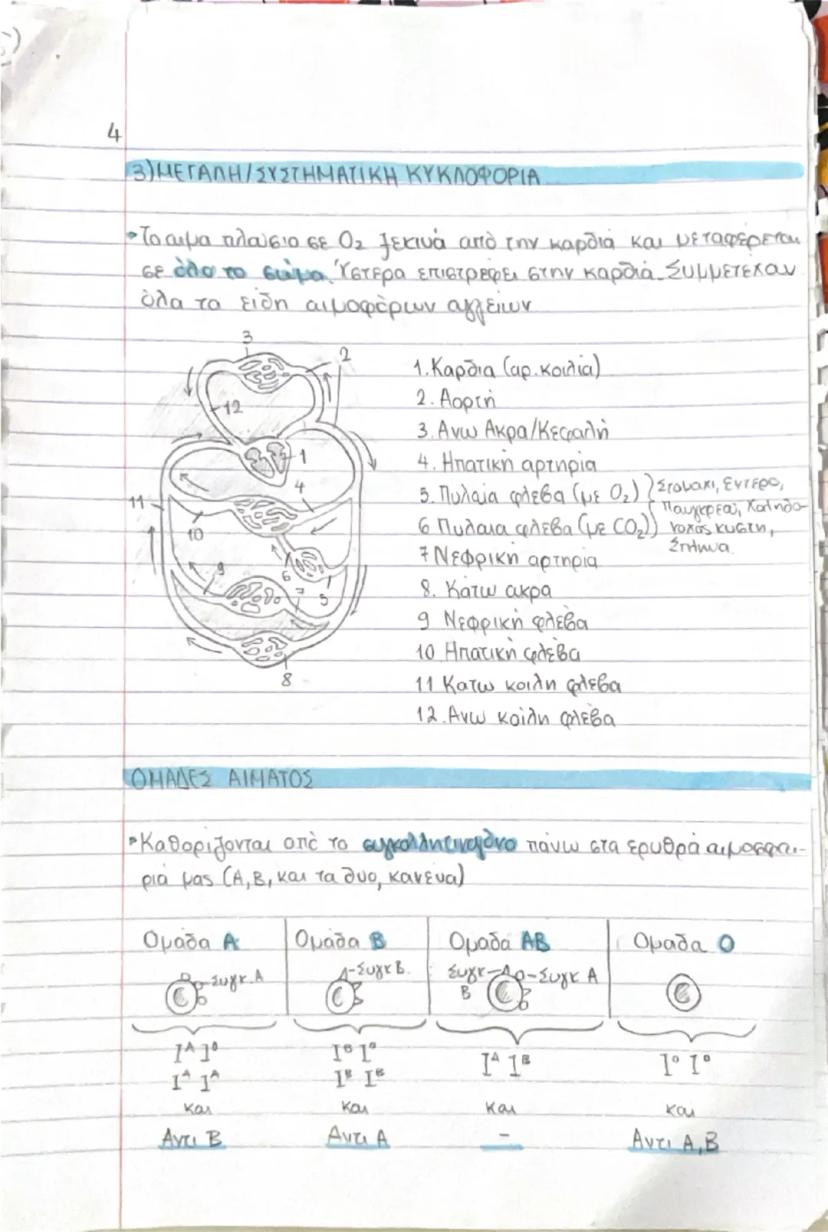 4
3) ΜΕΓΑΛΗ/ΣΥΣΤΗΜΑΤΙΚΗ ΚΥΚΛΟΦΟΡΙΑ
Το αιμα πλούσιο σε O₂ ξεκινά από την καρδιά και μεταφέρεται
σε όλο το σώμα. Ύστερα επιστρέφει στην καρδιά. Συμμετέχαν
όλα τα είδη αιμοφέρων αγγείων
3
2
12
1
4
11
10
9
6
7
5
8
1. Καρδια (αρ. κοιλία)
2. Αορτή
3. Ανω Ακρα/Κεφαλή
4. Ηπατική αρτηρία
5. Πυλαία φλέβα (με O₂) } Στομαχι, έντερο,
Παγκρεας, Χοληδο-
6 Πυλαια φλέβα (με CO₂) χοχος κυστη,
Σπληνα.
7 Νεφρική αρτηρία
8. Κάτω ακρα
9 Νεφρική φλέβα
10 Ηπατική φλέβα
11 Κατω κοιλη φλέβα
12. Ανω κοίλη φλέβα
ΟΜΑΔΕΣ ΑΙΜΑΤΟΣ
Καθορίζονται από το συγκολλητινογόνο πάνω στα ερυθρά αιμοσφαι-
ριά μας (Α, Β, και τα δυο, κανένα)
Ομάδα Α Ομάδα Β Ομάδα ΑΒ Ομαδα Ο
συγκ. Α Συγκ Β. Συγκ Β Συγκ Α
Iᴬ Iᴼ Iᴮ Iᴼ Iᴬ Iᴮ Iᴼ Iᴼ
Iᴬ Iᴬ Iᴮ Iᴮ
και και και και
Αντι Β Αντι Α - Αντι Α, Β